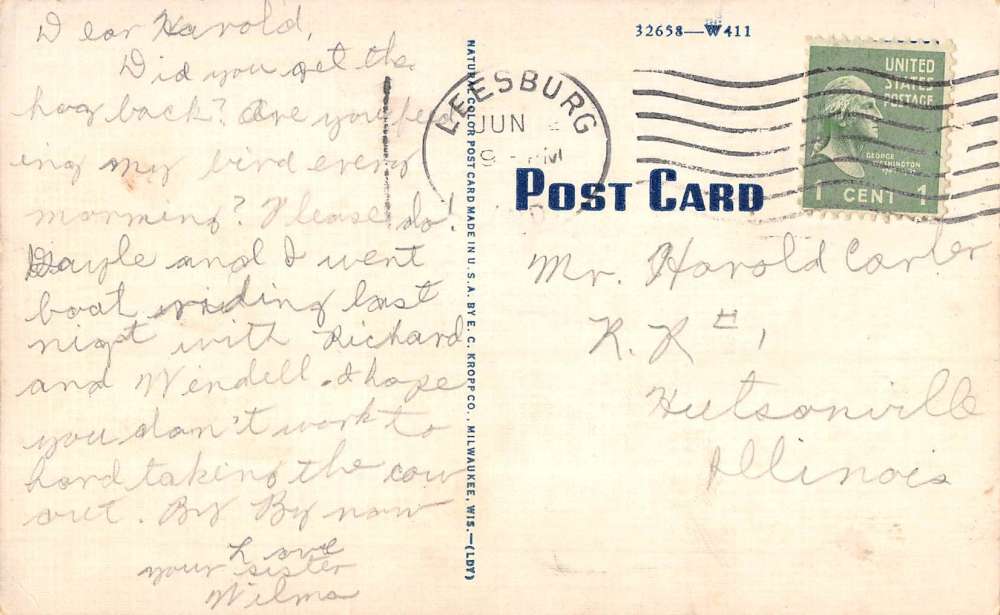 Dear Harold,
Did you get the
hog back? Are you feed
ing my bird every
morning? Please do!
Gayle and I went
boat riding last
night with Richard
and Wendell. I hope
you don't work to
hard taking the cow
out. By By now
Love
your sister
Wilma
NATURAL COLOR POST CARD MADE IN U.S.A. BY E. C. KROPP CO., MILWAUKEE, WIS.—(LDY)
32658—W411
LEESBURG
JUN
9 - PM
UNITED
STATES
POSTAGE
GEORGE
WASHINGTON
1 CENT 1
POST CARD
Mr. Harold Carter
R. R # 1
Hutsonville
Illinois